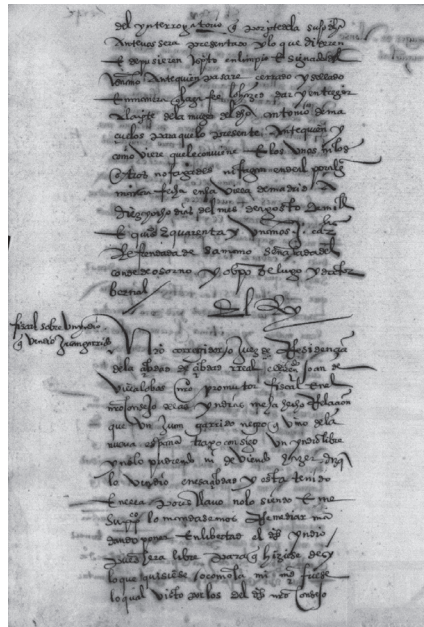 del ynterrogatorio q por parte dela suso dha
Ante vos sera presentado y lo que dixeren
E depusieren scripto en linpio E signado del
scrivano Ante quien pasare cerrado y sellado
En manera q haga fee lo hazed dar y entregar
A la parte dela muger del dho antonio de ma
cuelos para que lo presente Ante quien y
como viere que le conviene E los unos ni los
otros no fagades ni fagan ende al por alga
manera fecha en la villa de madrid A
diez y ocho dias del mes de agosto de mill
E quis quarenta y un años
Refrendada de samano señalada del
conde de osorno y obpo de lugo y dotor
bernal
El Rey
fiscal sobre un yndio
q vendio Juan garrido
Nro corregidor o Juez de Residençia
dela çibdad de
villalobos nro promutor fiscal En el
nro consejo delas yndias me ha hecho Relaçion
que un Juan garrido negro q vino dela
nueva españa traxo consigo un yndio libre
y no lo pudiendo ni deviendo hazer diz q
lo vendio en esa çibdad y esta tenido
En ella por esclavo no lo siendo E me
Suplico lo mandasemos Remediar man
dando poner En libertad el dho yndio
pues hera libre para q hiziese de sy
lo que quisiese o como la mi md fuese
lo qual visto por los del dho nro Consejo